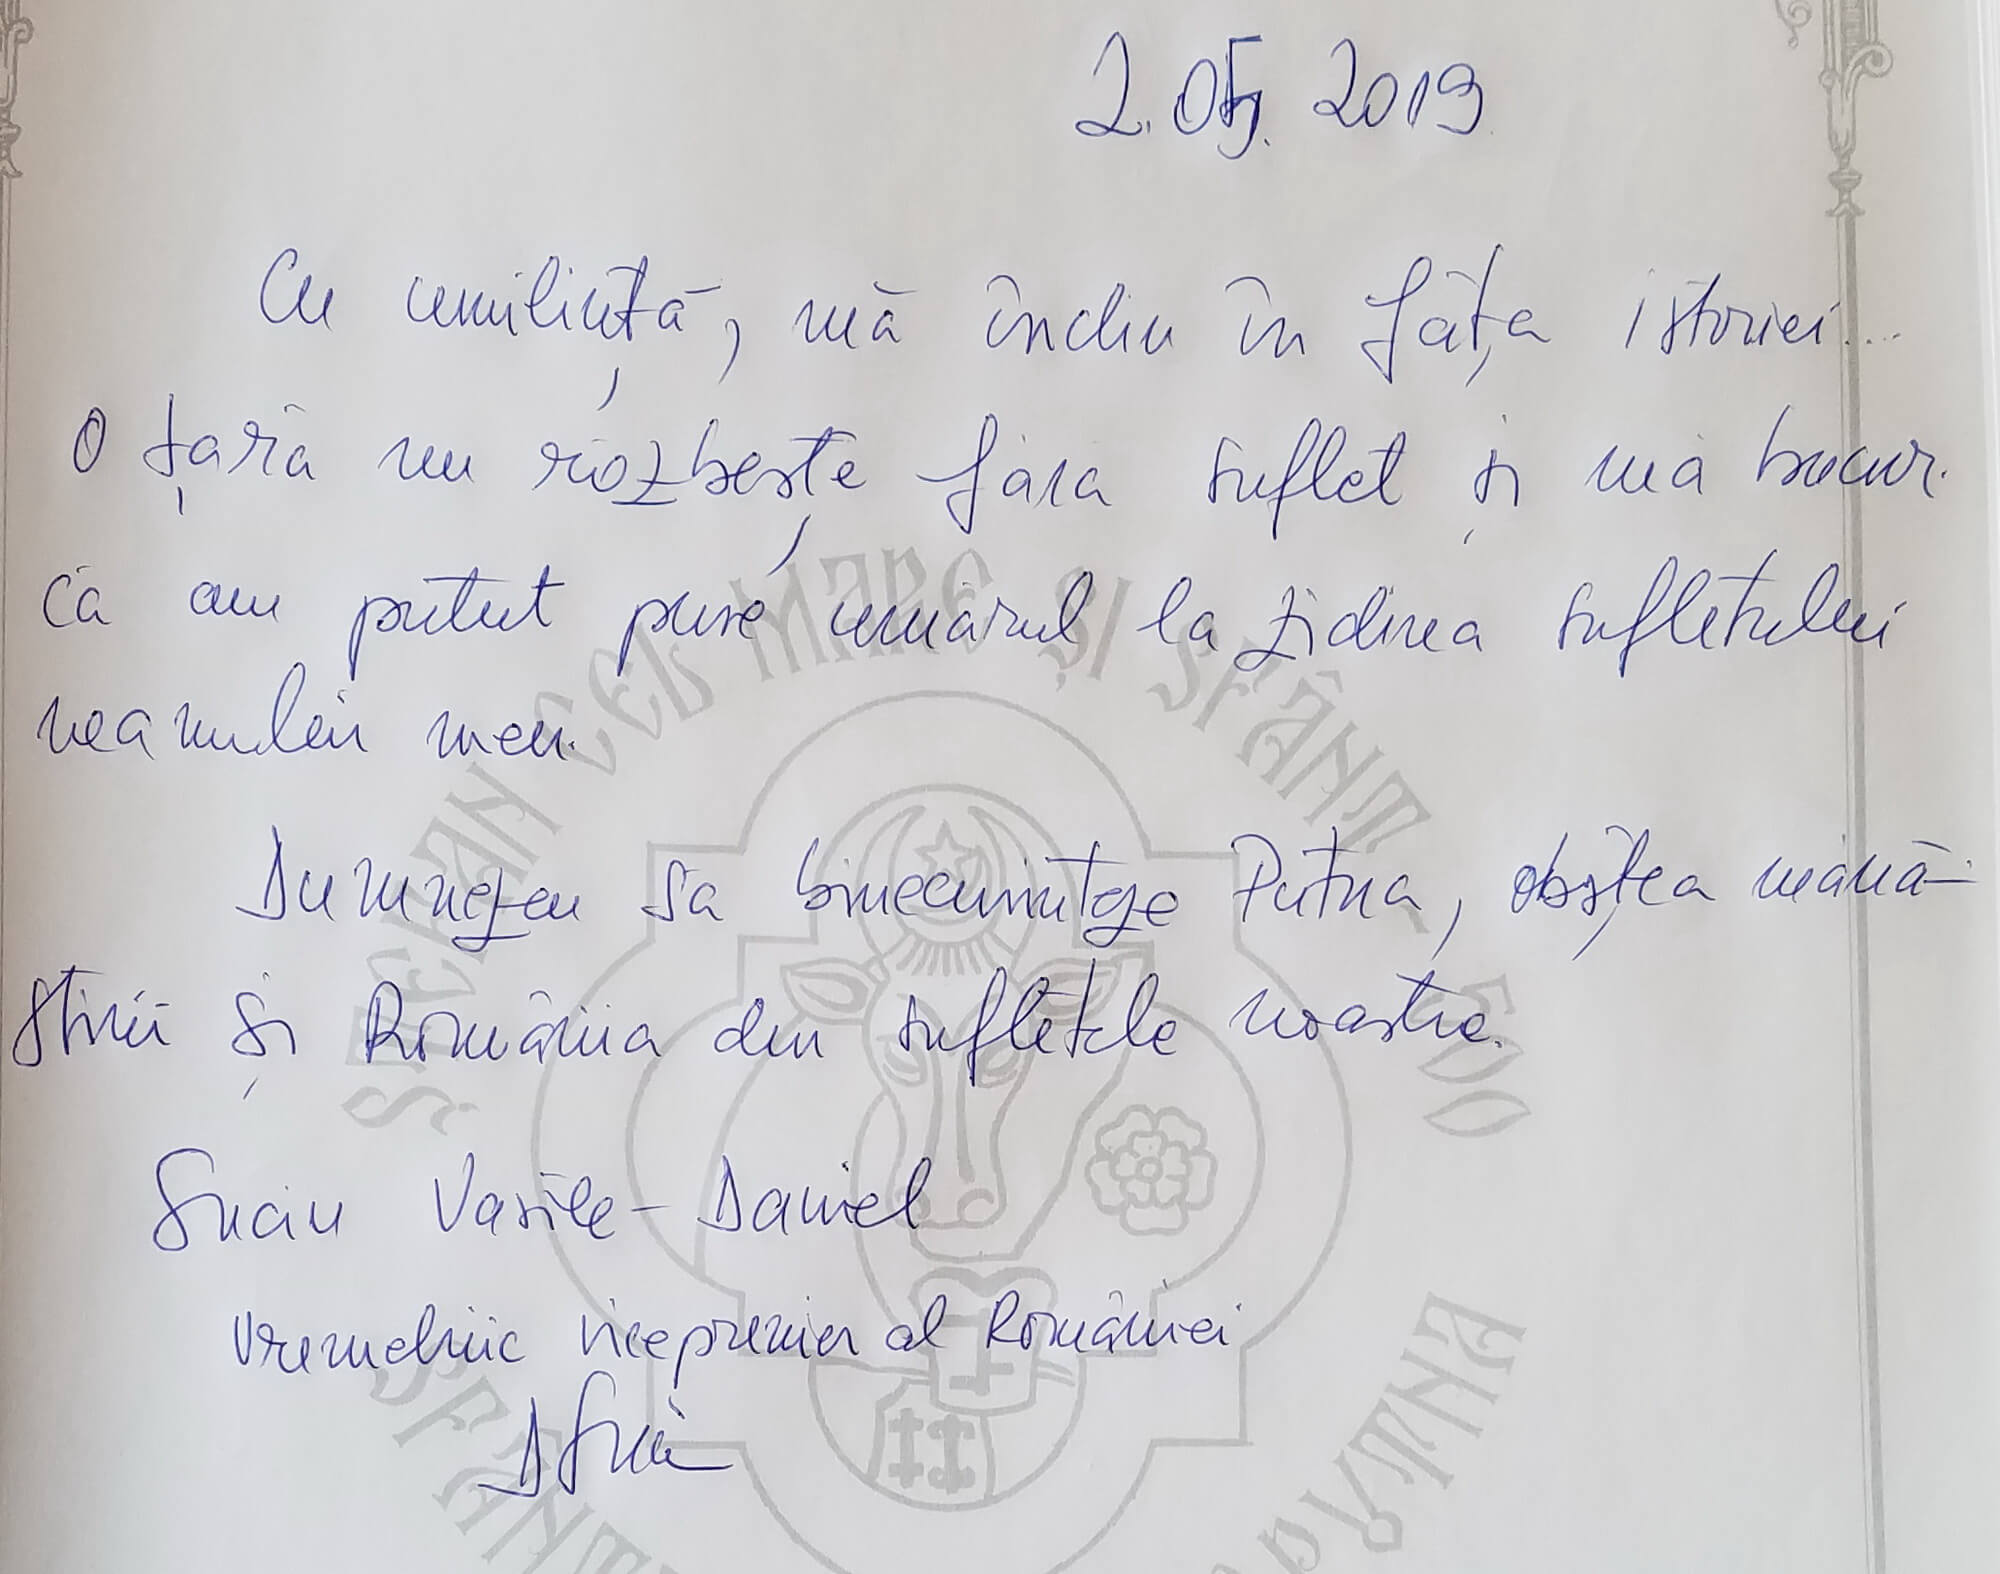 2.05. 2019
Cu umilință, mă închin în fața istoriei...
O țară nu răzbește fără suflet și mă bucur
că am putut pune umărul la zidirea sufletului
neamului meu.
Dumnezeu să binecuvinteze Putna, obștea mănă-
stirii și România din sufletele noastre.
Suciu Vasile-Daniel
Vremelnic vicepremier al României
ȘTEFAN CEL MARE ȘI SFÂNT 500
SFÂNTA PUTNA